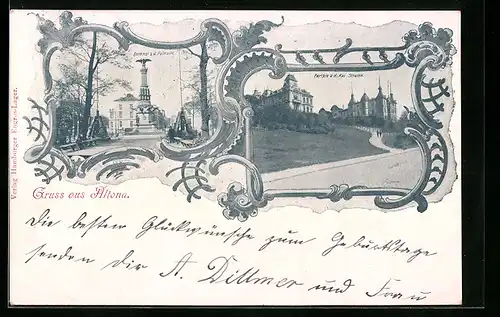 Denkmal a. d. Palmaille
Partie a. d. Kais. Strasse
Verlag Hamburger Engros-Lager.
Gruss aus Altona.
Die besten Glückwünsche zum Geburtstage
senden Dir A. Dittmer und Frau